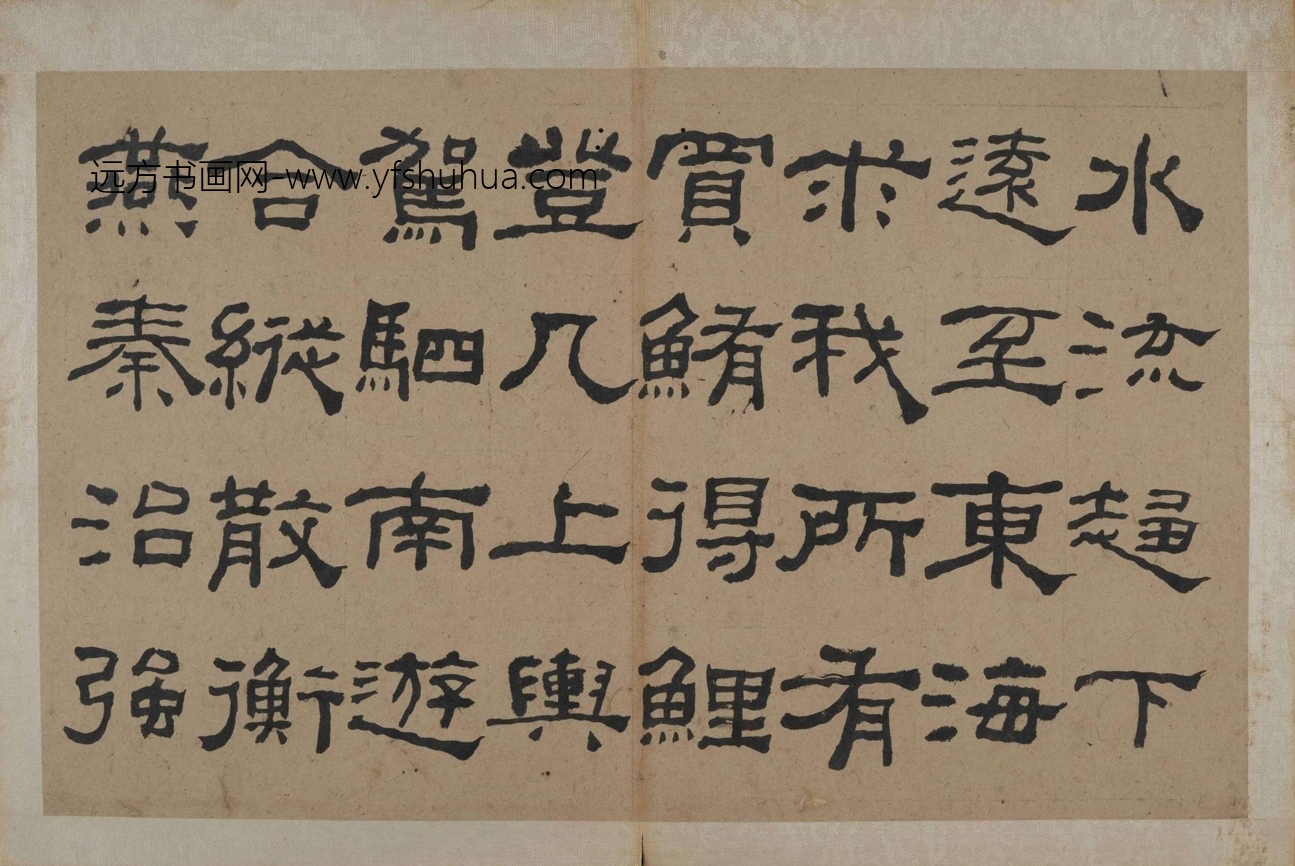 水流趨下
遠至東海
求我所有
買鮪得鯉
登几上輿
駕駟南遊
合縱散衡
燕秦治强
远方书画网-www.yfshuhua.com